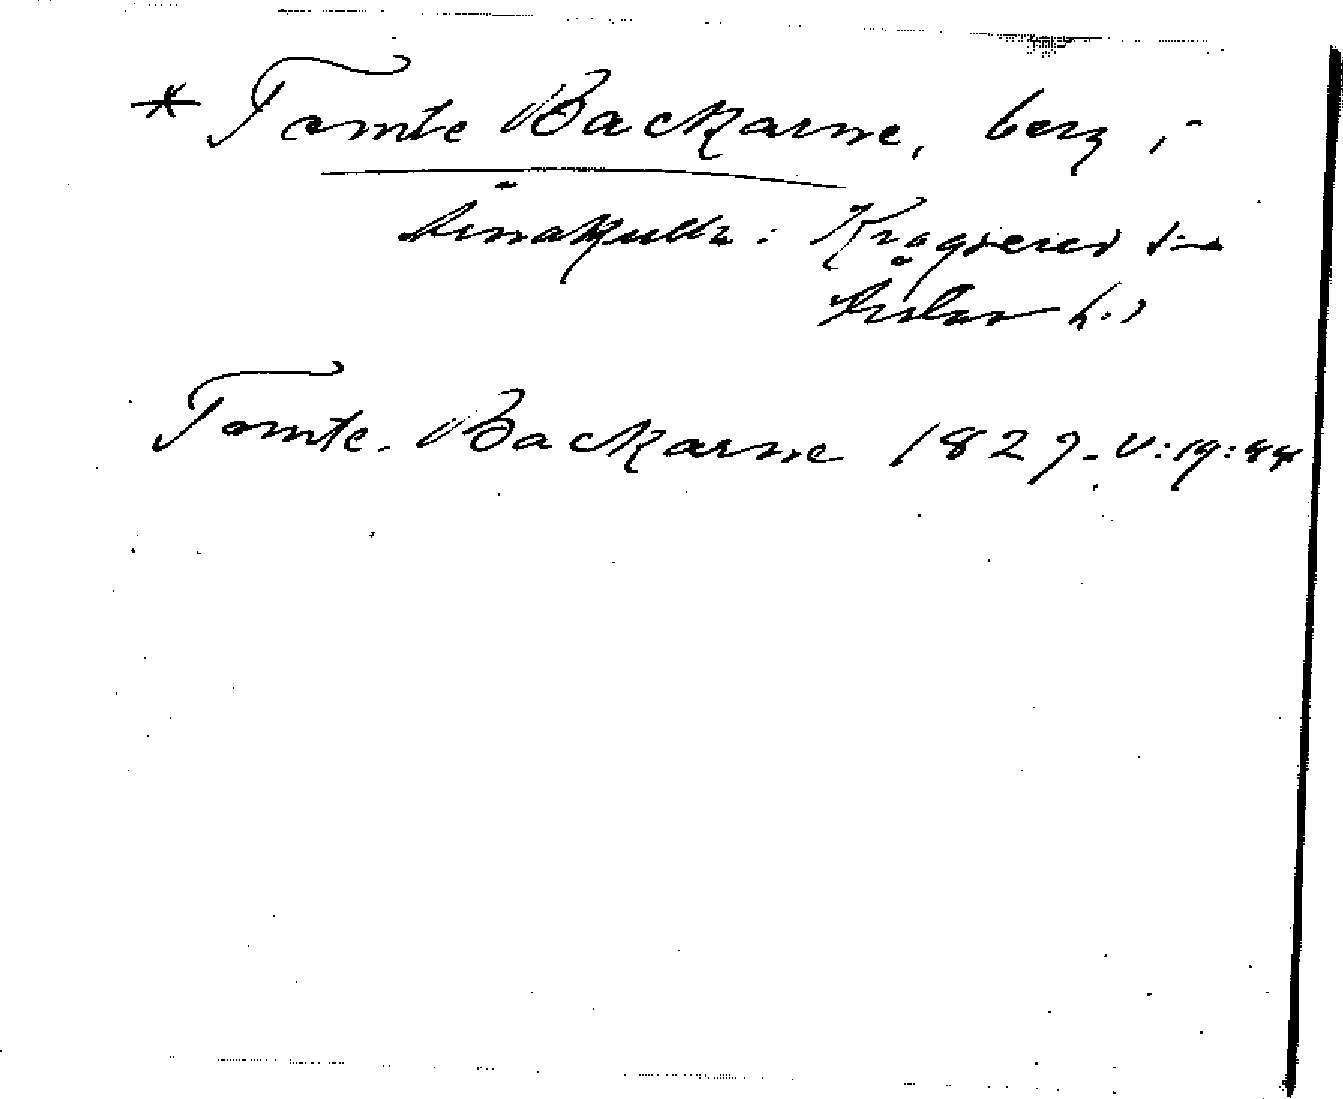 * Tomte Backarne, berg i
Kinnakulle: Kragereds
h.)
Tomte-Backarne 1827. V:19:44